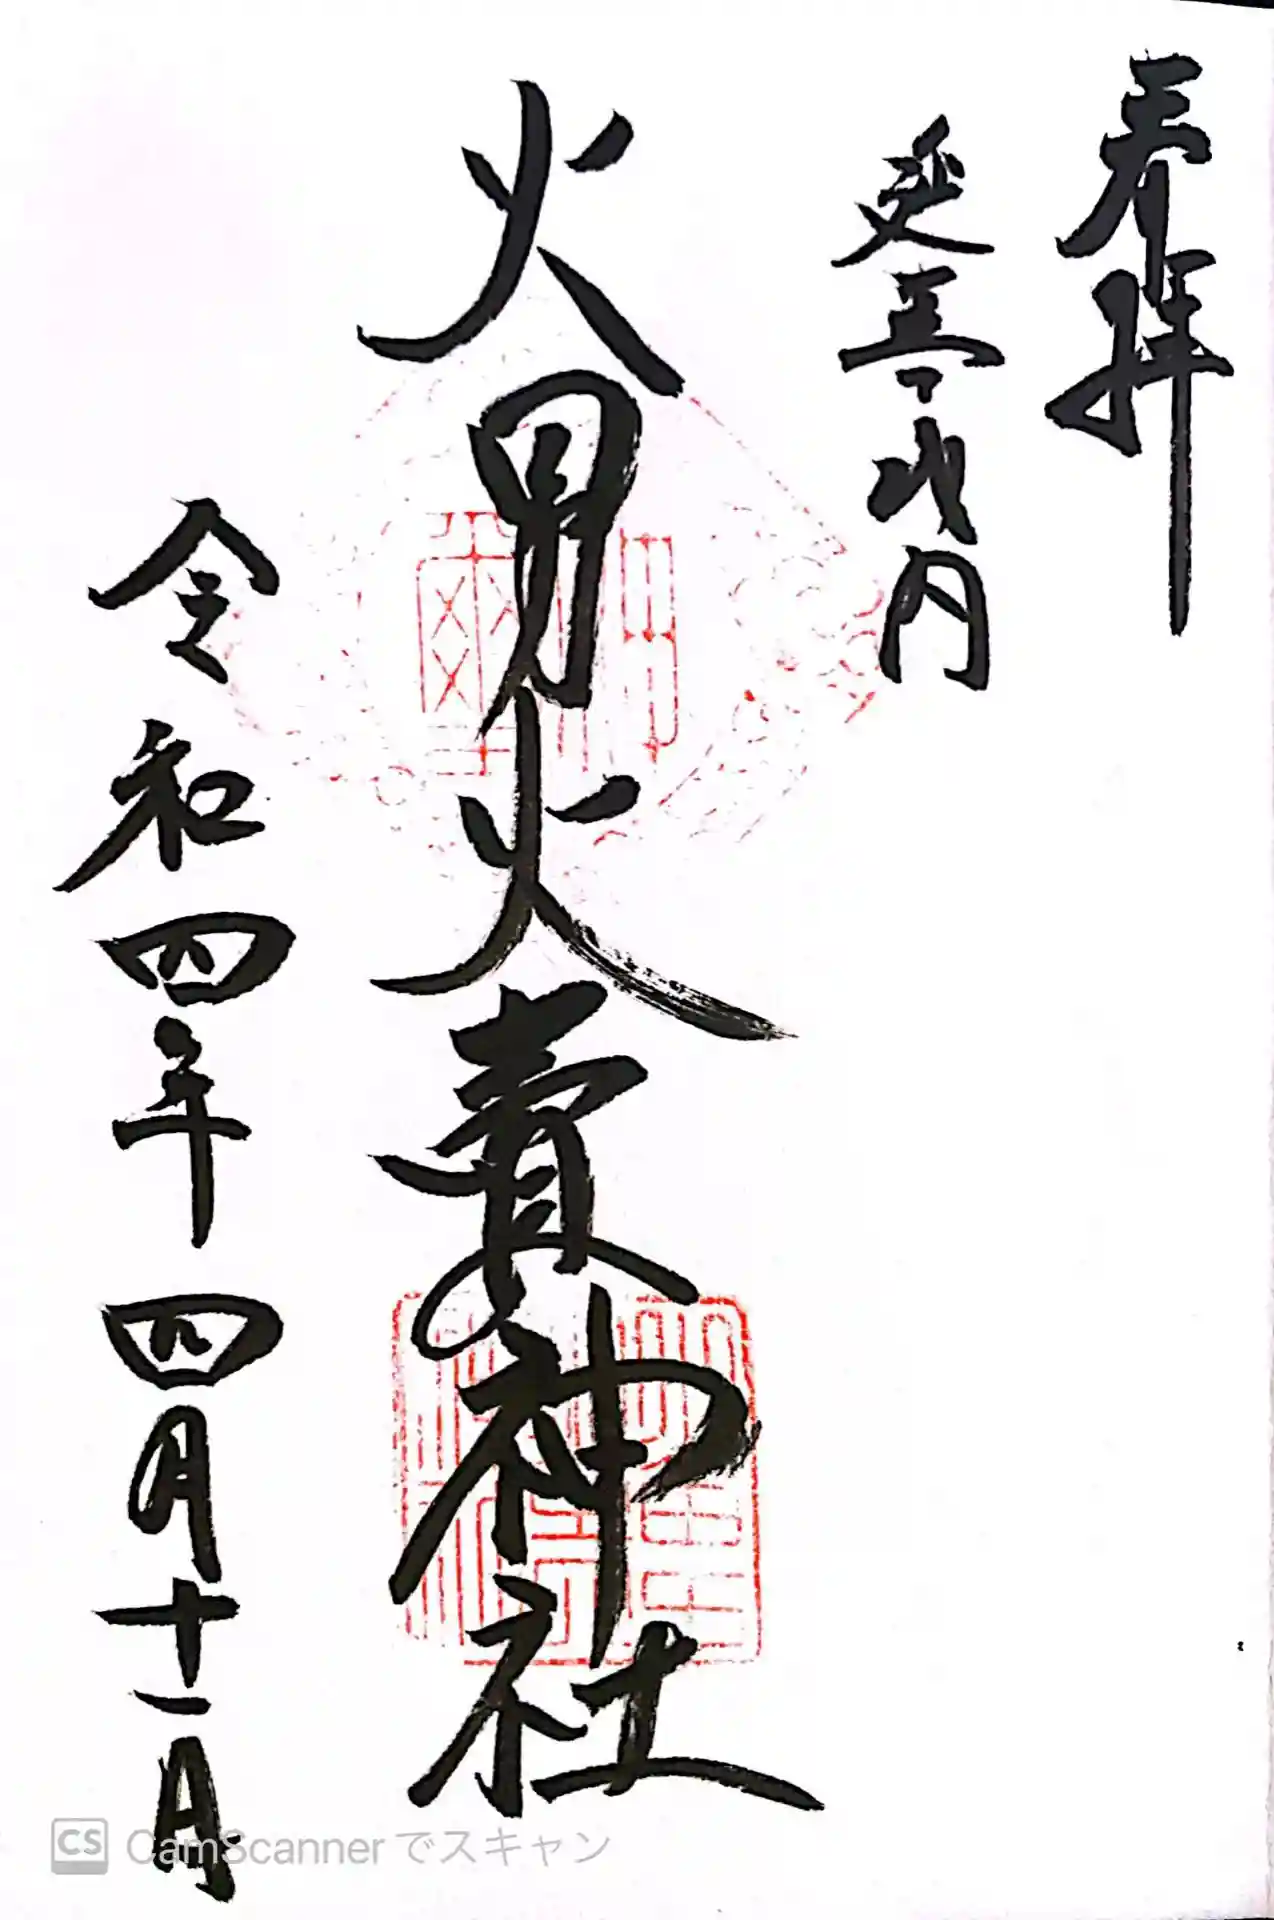 奉拝
延喜式内
火男火賣神社
令和四年四月十一日
CS CamScannerでスキャン